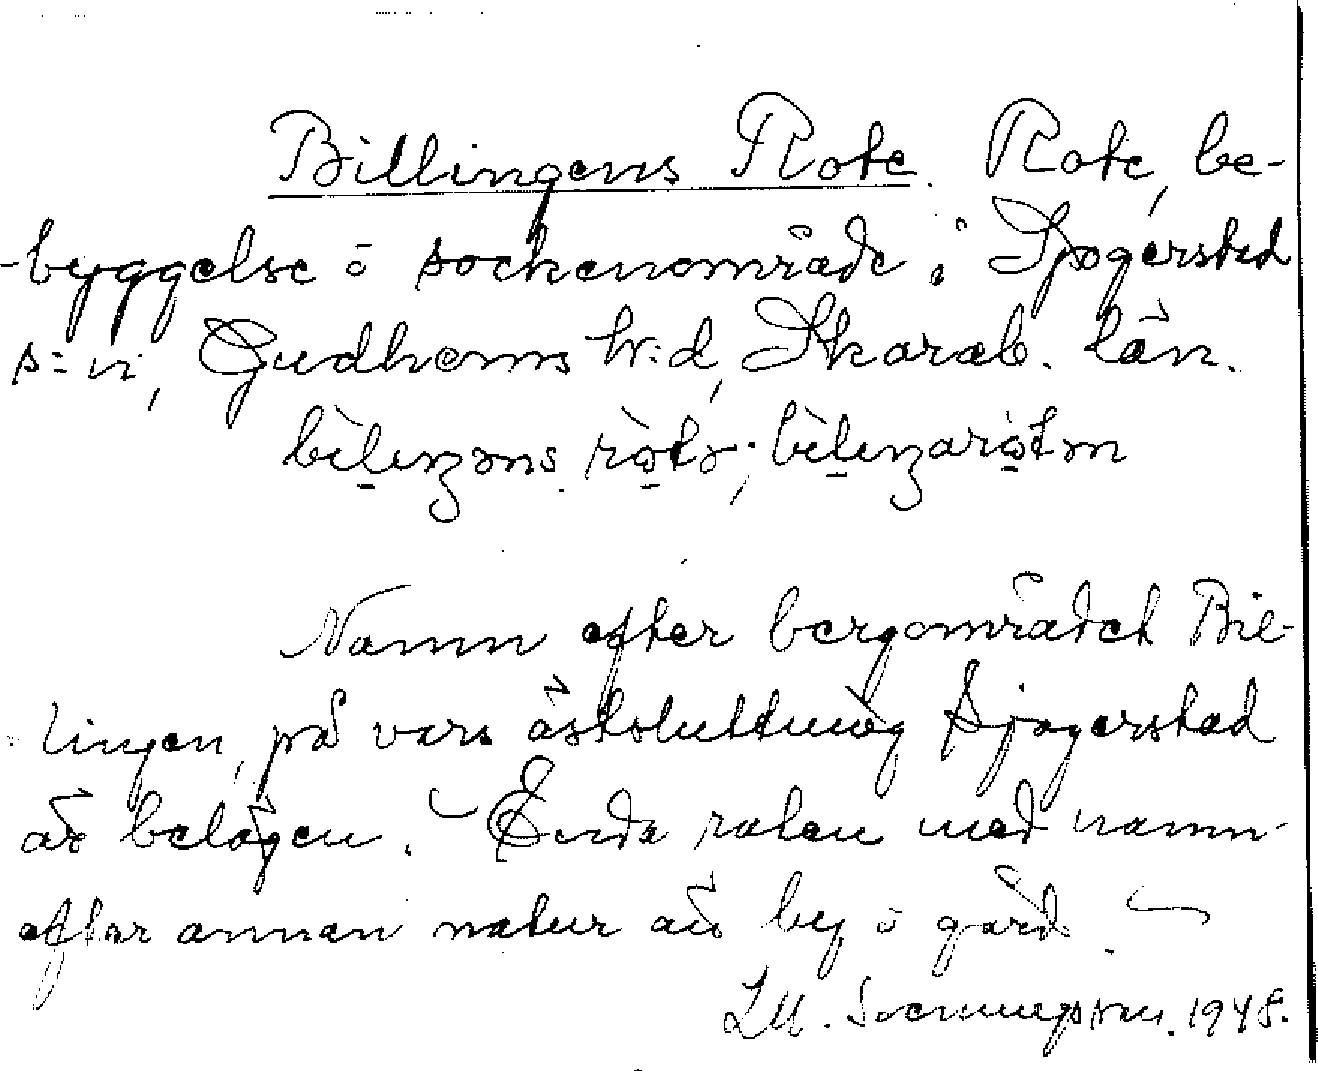 Billingens Rote. Rote, be-
-byggelse ō sockenområde i Sjogerstad
s:n, Gudhems h:d, Skarab. län.
Namn efter bergområdet Bil-
lingen, på vars östsluttning Sjogerstad
är belägen. Enda roten med namn
efter annan natur än by ō gård.
LM. Svenungsson. 1948.